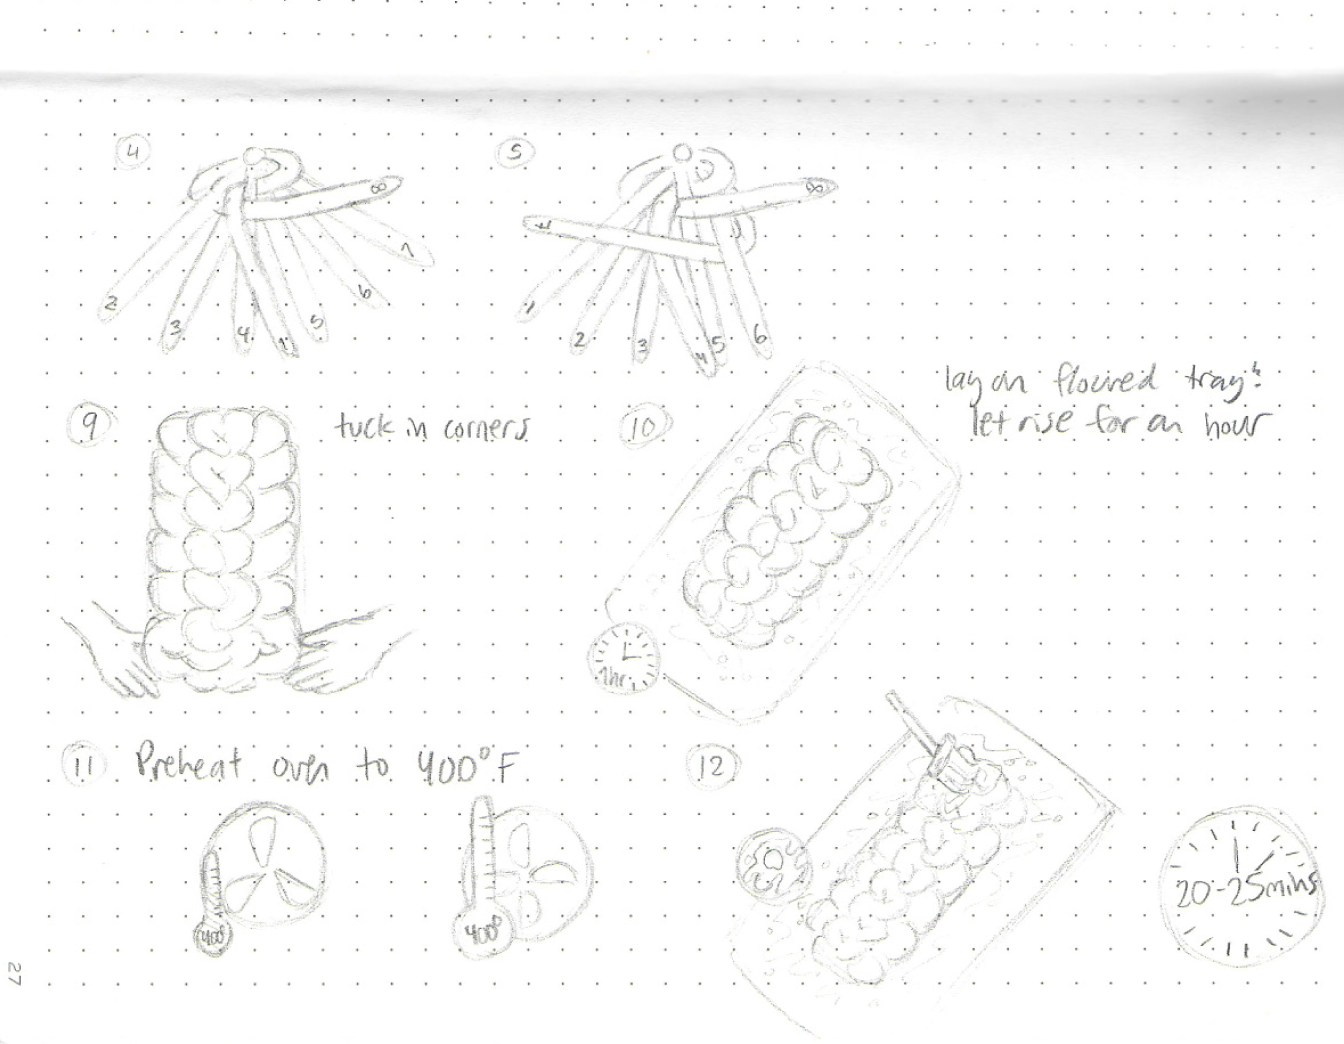 4
8
2
3
4
1
5
6
7
5
8
7
1
2
3
4
5
6
9
tuck in corners
10
lay on floured tray &
let rise for an hour
1hr
11 Preheat oven to 400°F
400°
400°
12
20-25mins
27